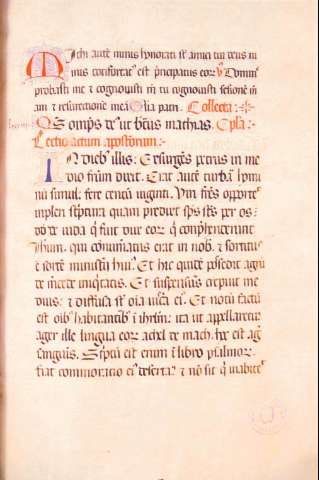 Michi aute nimis honorati st amici tui deus ni
mis confortat est principatus eor ℣ Domine
probasti me ⁊ cognouisti me tu cognouisti sessione m
am ⁊ resurectione mea Glia patri. Collecta:
Qs omps ds ut btus machias. Epla.
Lectio actuum apostorum:
IN dieb illis: Exurges petrus in me
dio frum dixit. Erat aute turba homi
nu simul: fere centu uiginti. Viri fres oportet
impleri scptura quam predixit sps scs per os
dd de iuda q fuit dux eor q comprehenderunt
ihum. qui connumeratus erat in nob. ⁊ sortitus
e sorte ministerii hui. Et hic quide possedit agru
de mercede iniqtatis. Et suspensus crepuit me
dius: ⁊ diffusa st oia uiscera ei. Et notu factu
est oib habitantib i ihrlm: ita ut appellaretur
ager ille lingua eor acheldemach. hoc est ager
sanguis. Scptu est enim i libro psalmor.
fiat commoratio ei deserta. ⁊ no sit q inhabitet